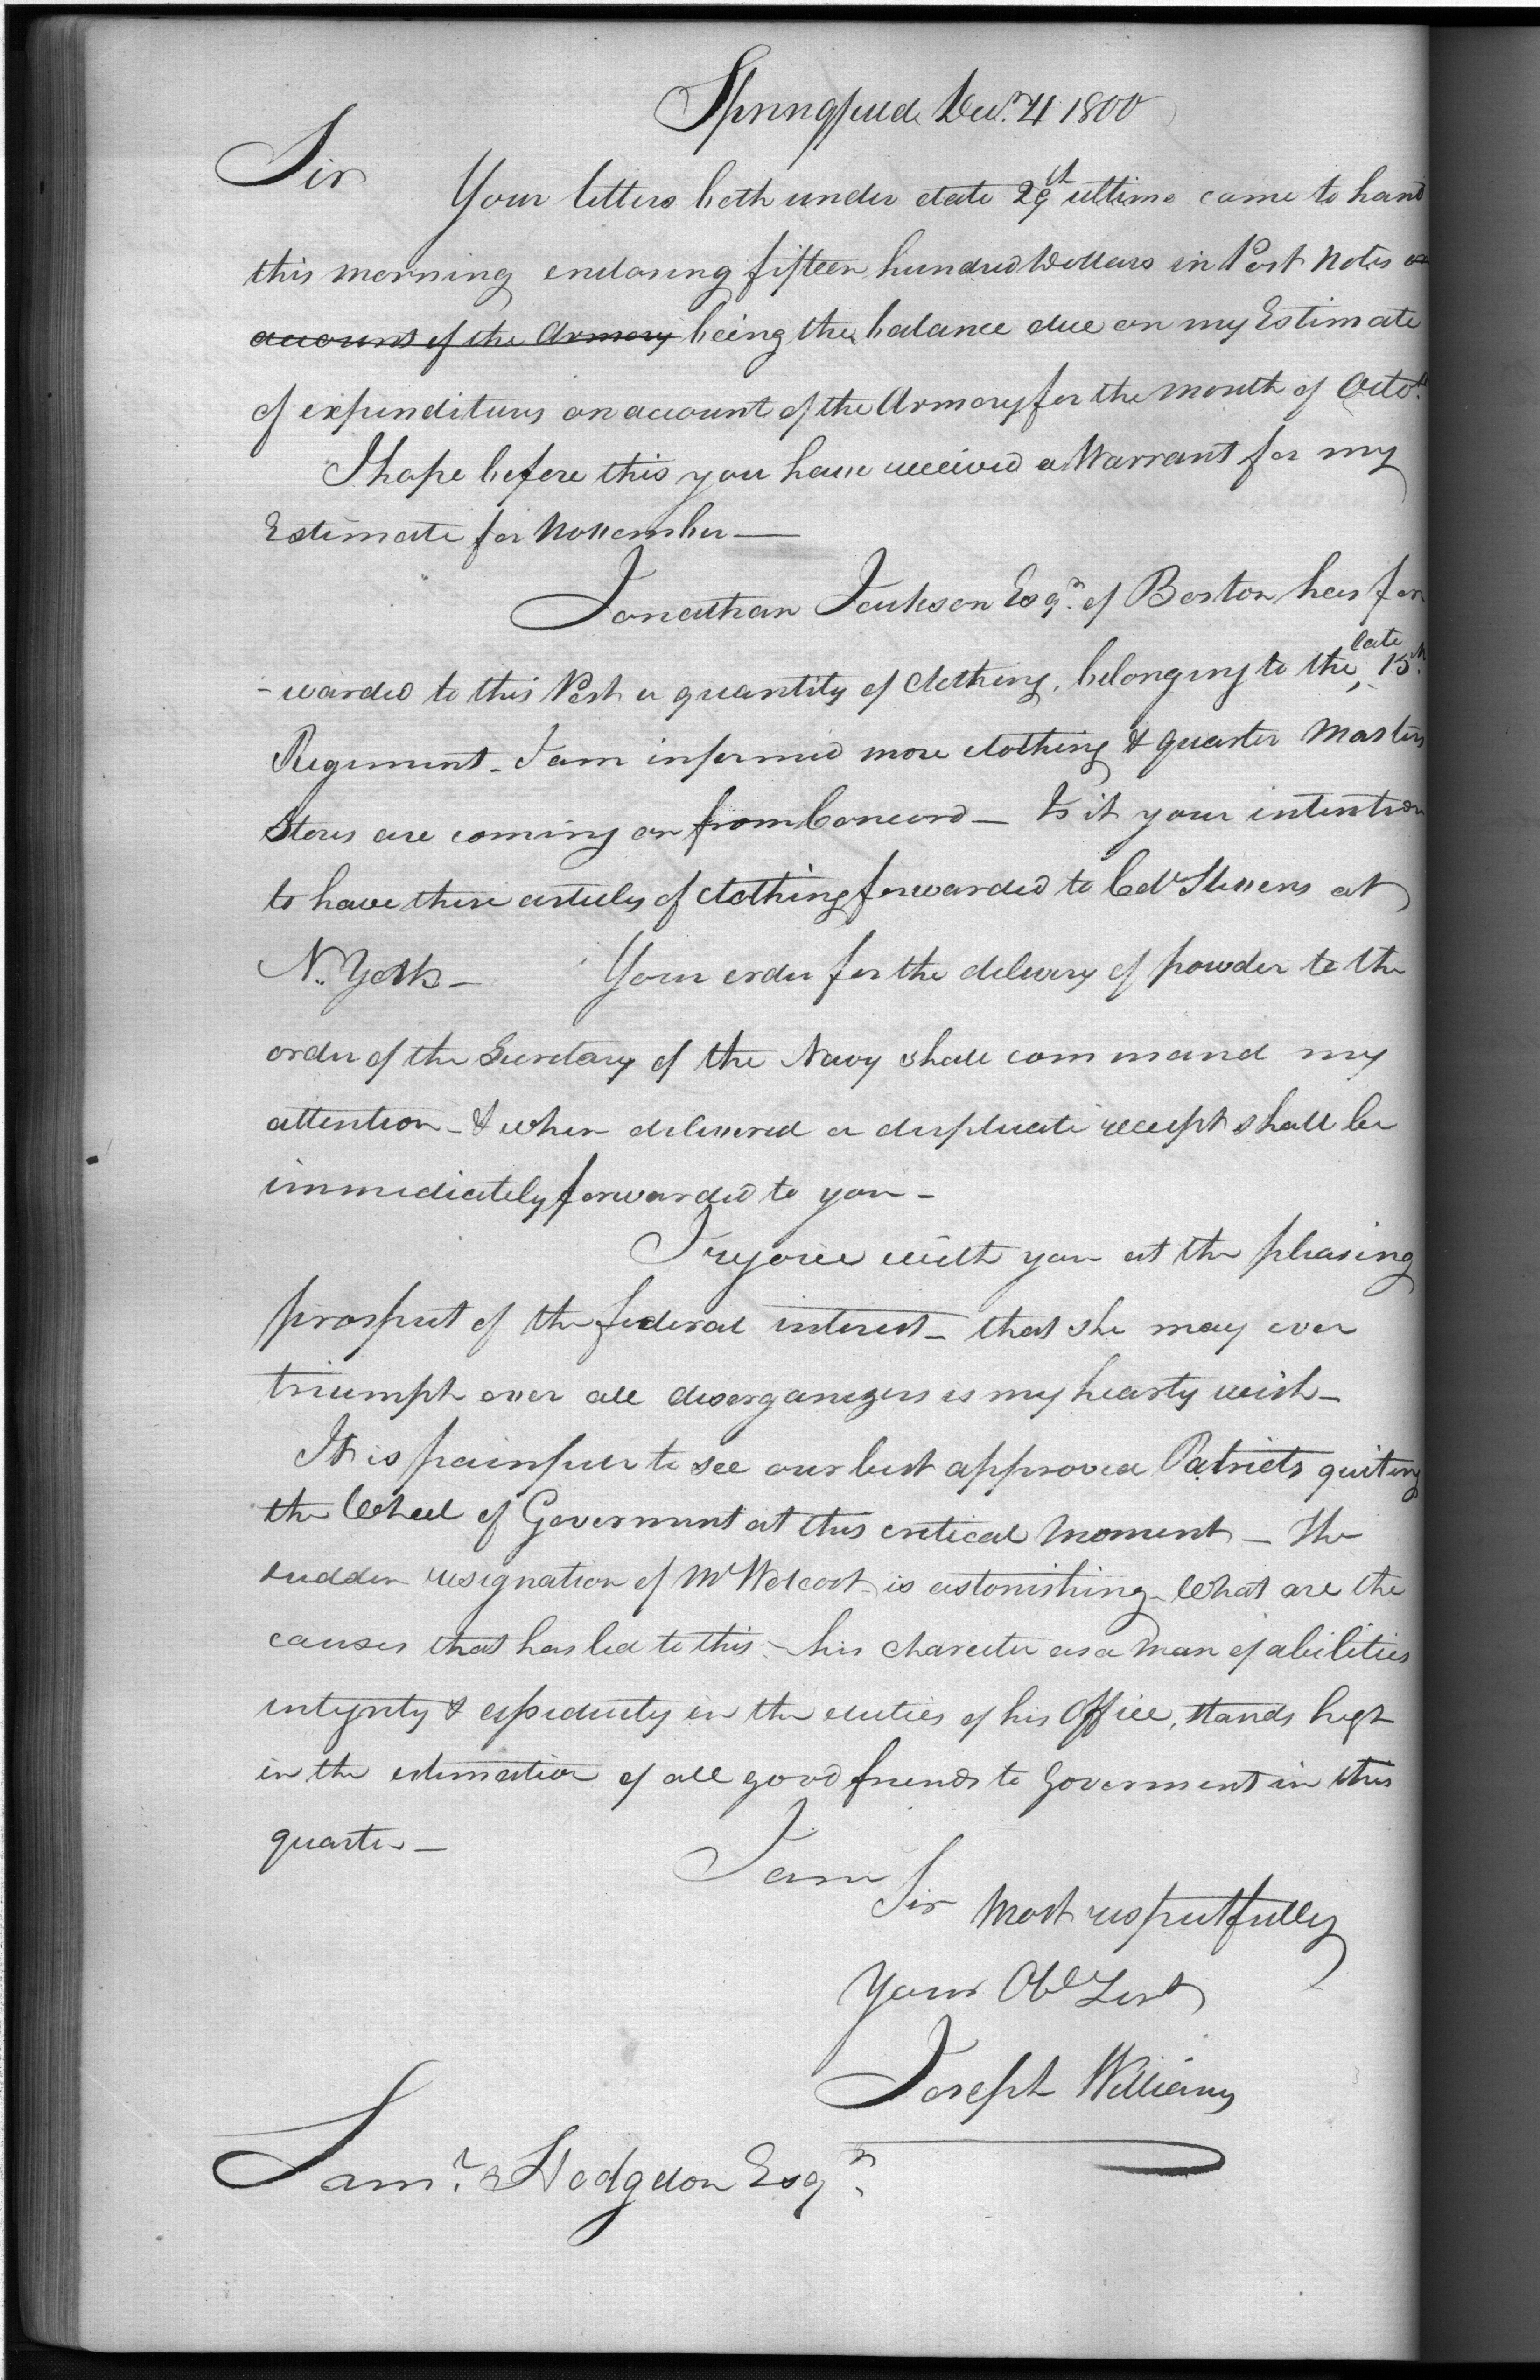 Springfield Decr. 4 1800
Sir
Your letters both under date 29th ultimo came to hand
this morning enclosing fifteen hundred Dollars in Post Notes on
account of the Armory being the balance due on my Estimate
of expenditures on account of the Armory for the month of Octor.
I hope before this you have received a Warrant for my
Estimate for November —
Jonathan Jackson Esqr. of Boston has for
- warded to this Post a quantity of Clothing, belonging to the late 15th
Regiment - I am informed more clothing & quarter Masters
Stores are coming on from Concord — Is it your intention
to have these articles of Clothing forwarded to Col Stevens at
N. York — Your order for the delivery of powder to the
order of the Secretary of the Navy shall command my
attention - & when delivered a duplicate receipt shall be
immediately forwarded to you -
I rejoice with you at the pleasing
prospect of the federal interest - that she may ever
triumph over all disorganizers is my hearty wish -
It is painfull to see our best approved Patriots quiting
the Wheel of Goverment at this critical moment — The
sudden resignation of Mr Wolcott is astonishing - What are the
causes that has led to this - his charecter as a man of abilities
integrity & in the duties of his Office, stands high
in the estimation of all good friends to Goverment in this
quarter —
I am
Sir Most respectfully
Your Obe Sert
Joseph Williams
Saml. Hodgdon Esqr.